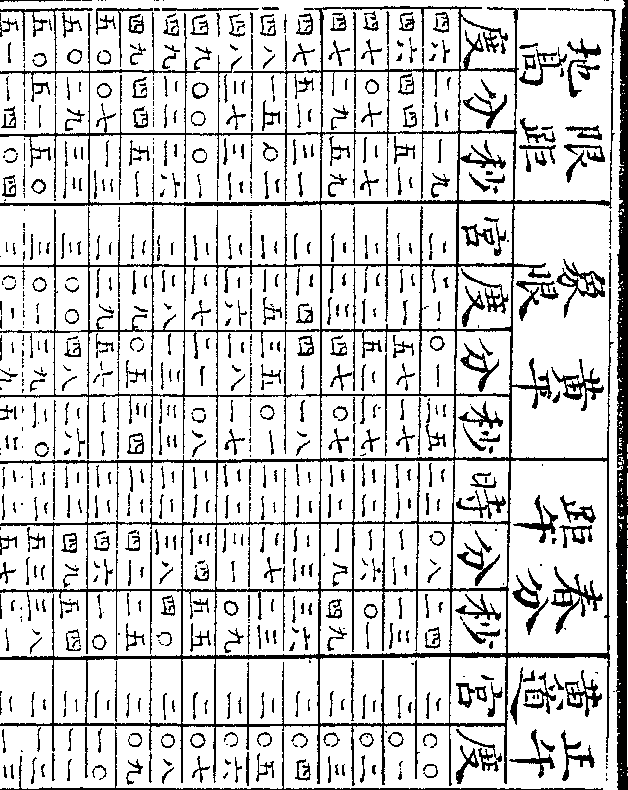 限距地高 黃平象限 春分距午 正午黃道
度 分 秒 宮 度 分 秒 時 分 秒 宮 度
四六 二二 一九 二 二一 〇一 三五 二二 〇八 二四 二 〇〇
四六 四四 五二 二 二一 五七 一七 二二 一二 一三 二 〇一
四七 〇七 二七 二 二二 五二 二七 二二 一六 〇一 二 〇二
四七 二九 五九 二 二三 四七 〇七 二二 一九 四九 二 〇三
四七 五二 三一 二 二四 四一 一八 二二 二三 三六 二 〇四
四八 一五 〇二 二 二五 三五 〇一 二二 二七 二三 二 〇五
四八 三七 三二 二 二六 二八 一七 二二 三一 〇九 二 〇六
四九 〇〇 〇一 二 二七 二一 〇八 二二 三四 五五 二 〇七
四九 二二 二六 二 二八 一三 三三 二二 三八 四〇 二 〇八
四九 四四 五一 二 二九 〇五 三四 二二 四二 二五 二 〇九
五〇 〇七 一三 二 二九 五七 一一 二二 四六 一〇 二 一〇
五〇 二九 三三 三 〇〇 四八 二六 二二 四九 五四 二 一一
五〇 五一 五〇 三 〇一 三九 二〇 二二 五三 三八 二 一二
五一 一四 〇四 三 〇二 二九 五三 二二 五七 二一 二 一三